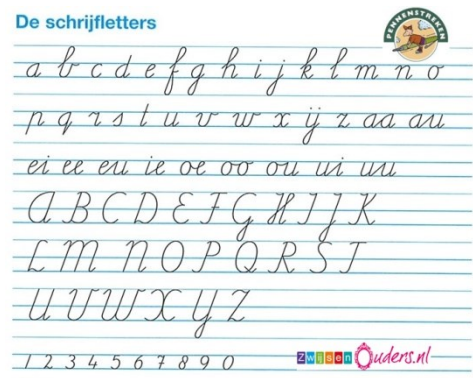 De schrijfletters
PENNENSTREKEN
a b c d e f g h i j k l m n o
p q r s t u v w x ij z aa au
ei ee eu ie oe oo ou ui uu
A B C D E F G H I J K
L M N O P Q R S T
U V W X Y Z
1 2 3 4 5 6 7 8 9 0
Zwijsen Ouders.nl